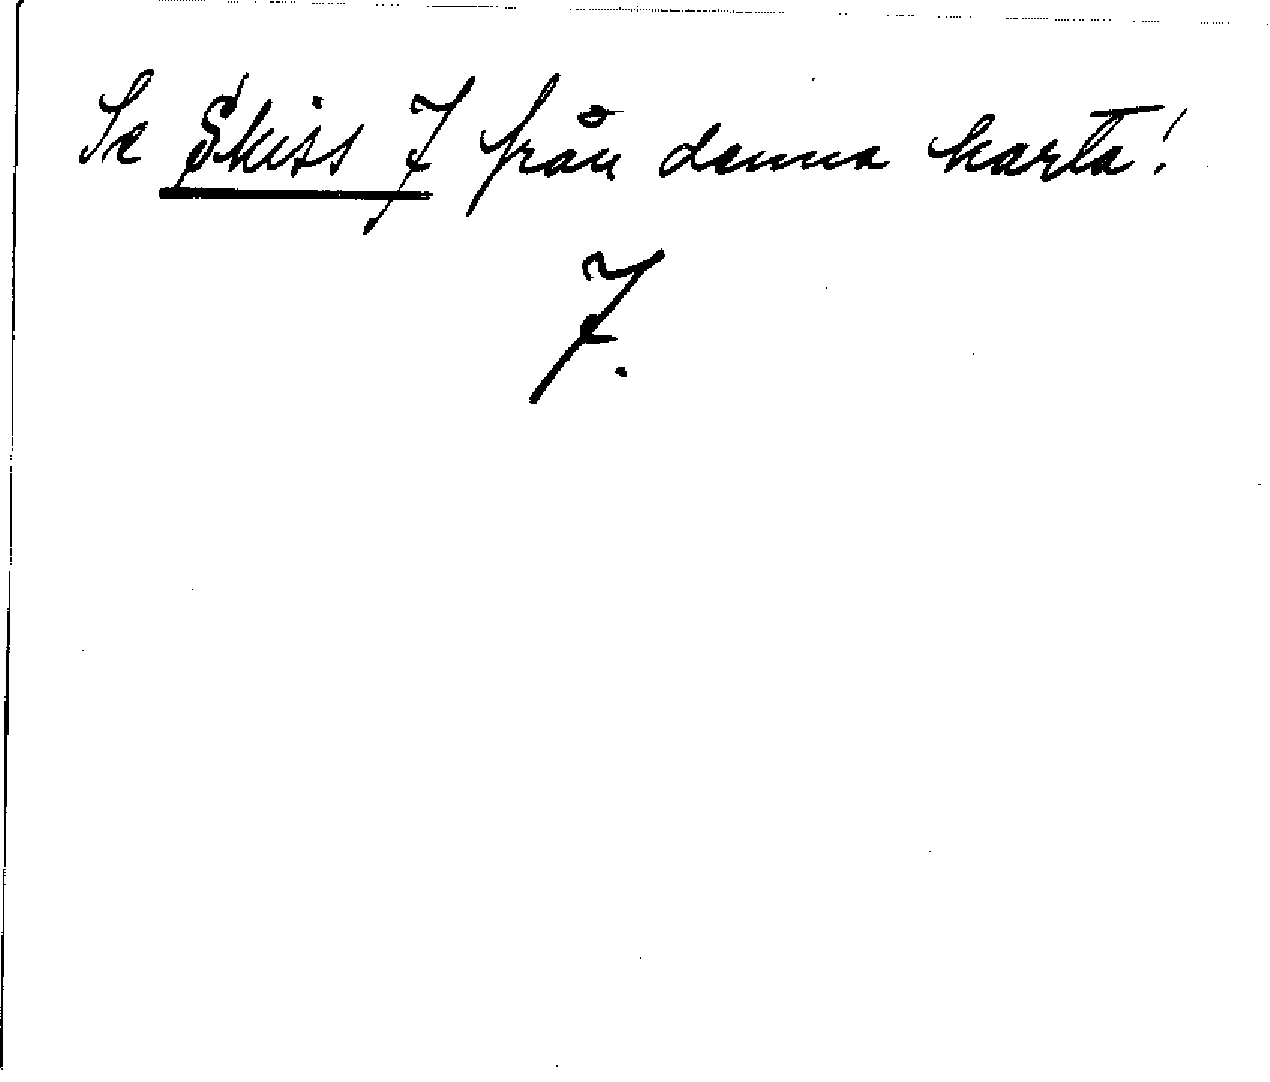 Se Skiss 7 från denna karta!
7.